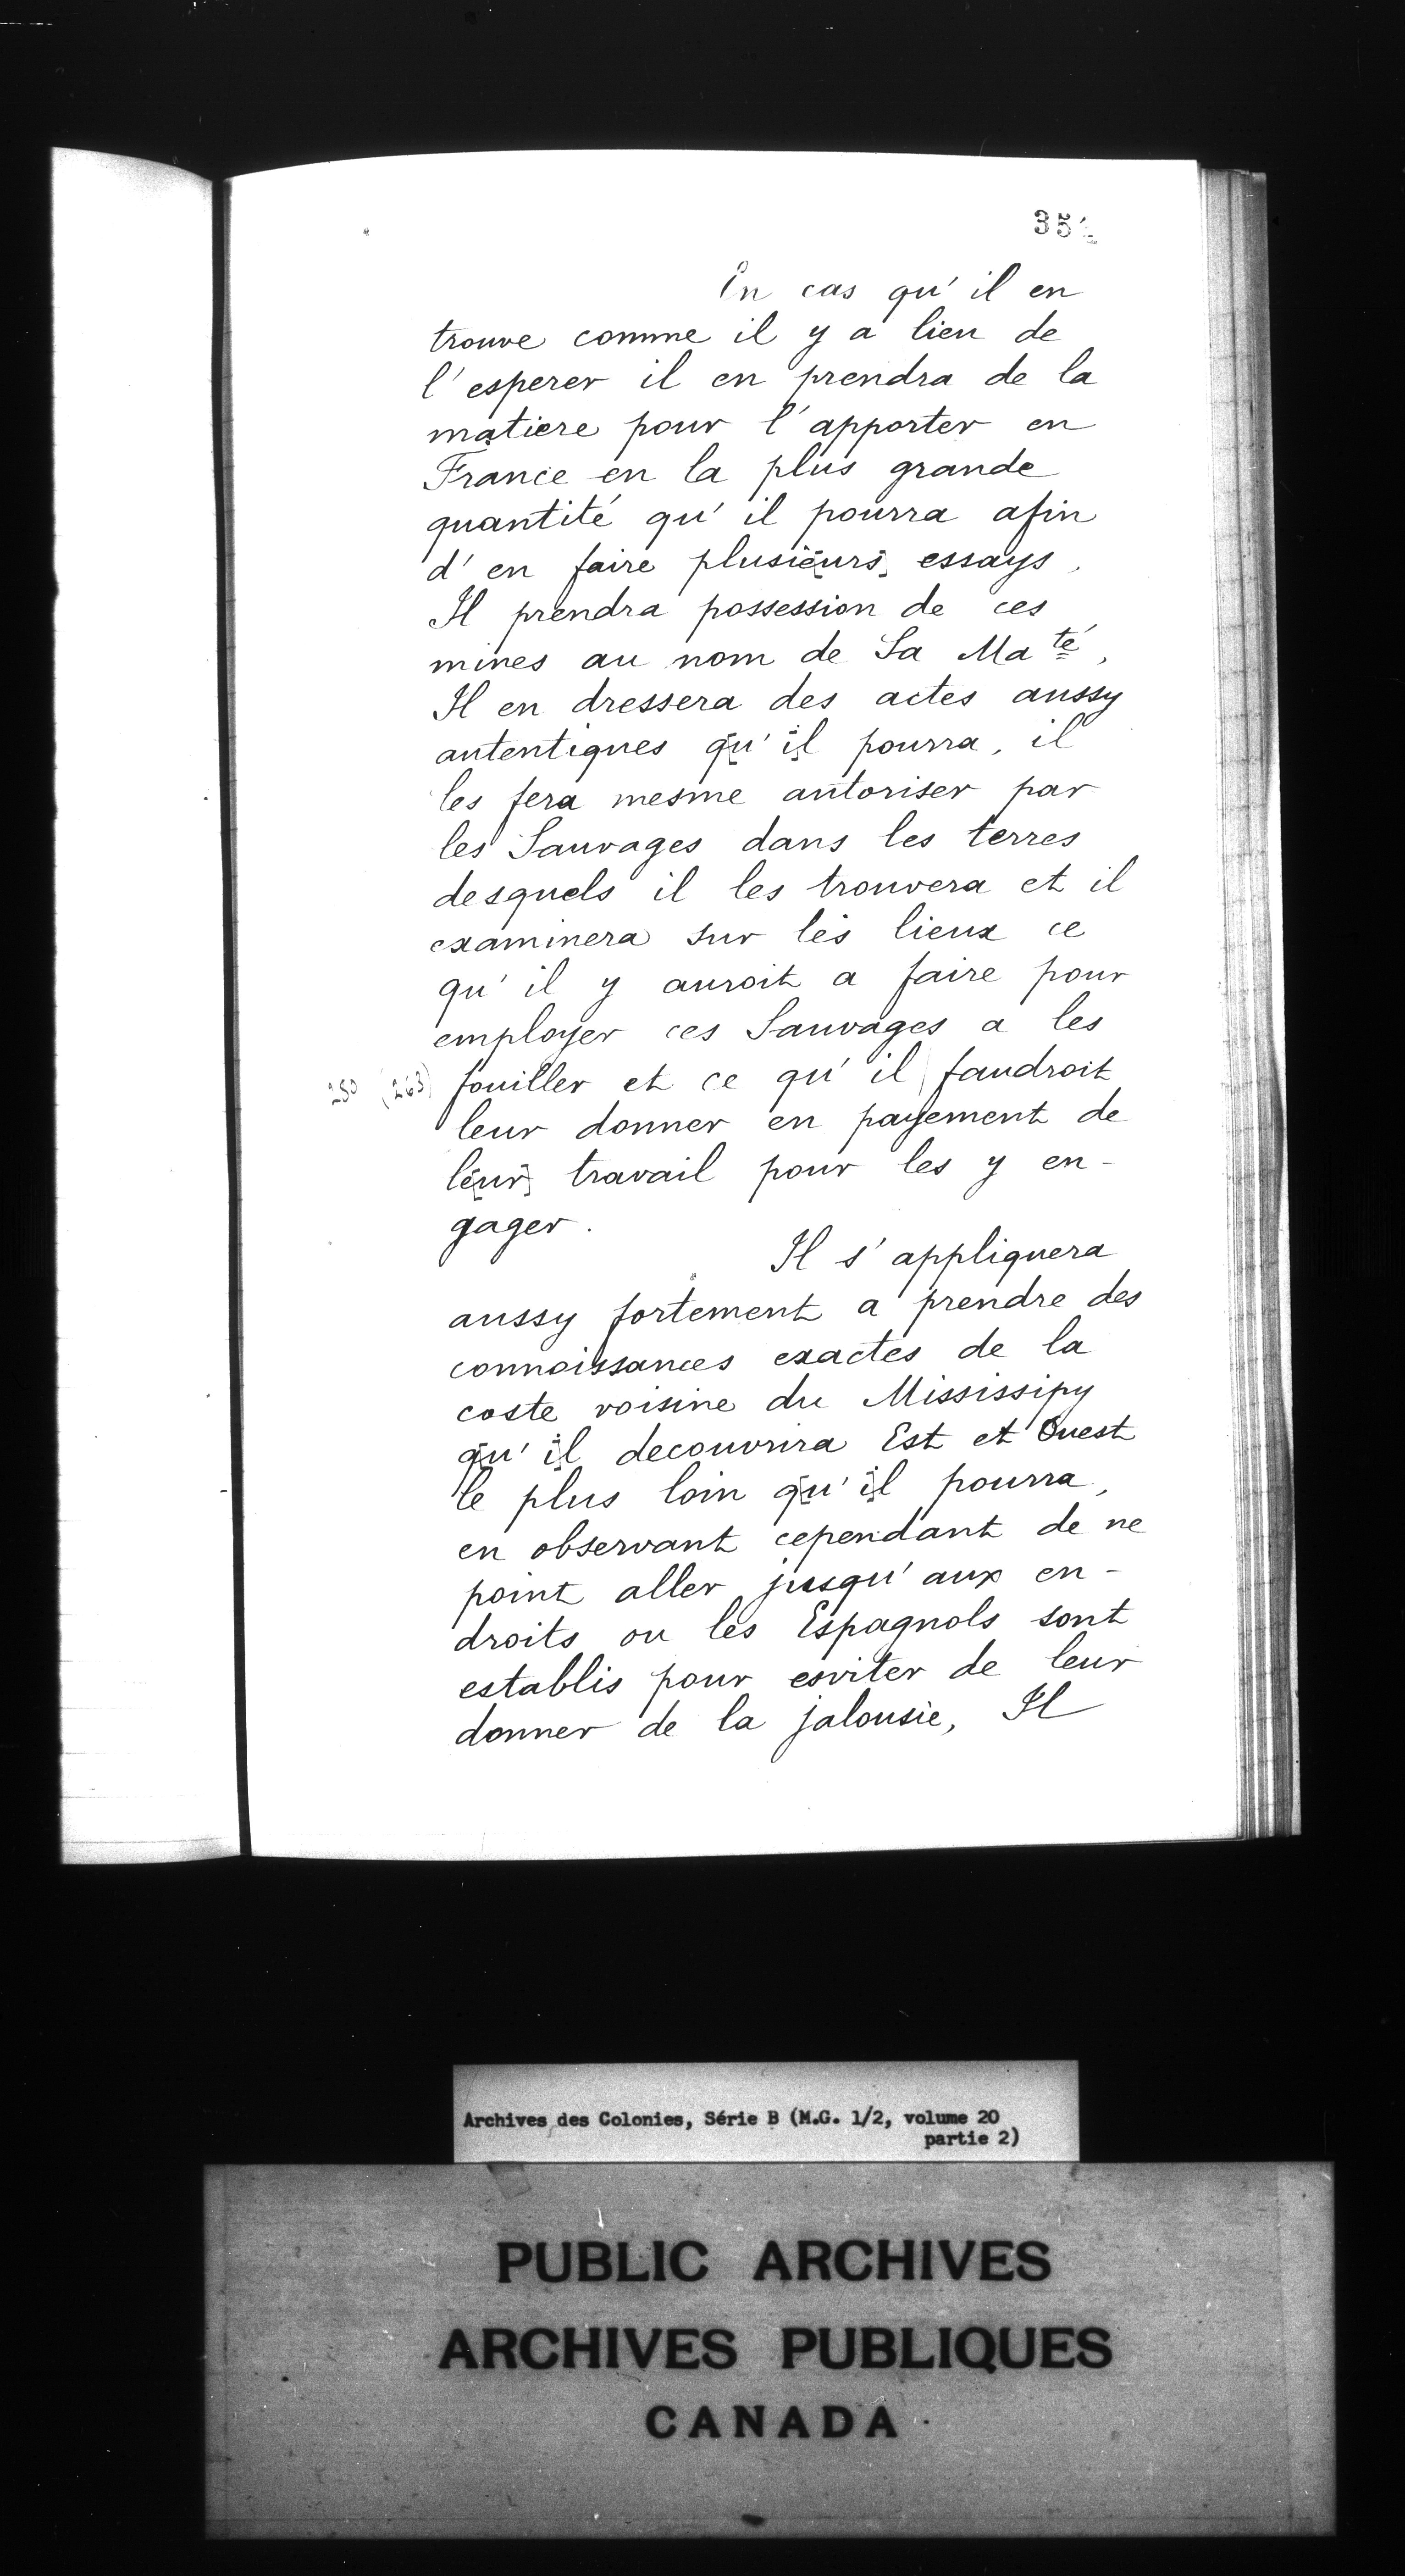 En cas qu'il en
trouve comme il y a lieu de
l'esperer il en prendra de la
matiere pour l'apporter en
France en la plus grande
quantité qu'il pourra afin
d'en faire plusi[eurs] essays.
Il prendra possession de ces
mines au nom de Sa Ma té,
Il en dressera des actes aussy
autentiques q[u'i]l pourra, il
les fera mesme autoriser par
les Sauvages dans les terres
desquels il les trouvera et il
examinera sur les lieux ce
qu'il y auroit a faire pour
employer ces Sauvages a les
250 (263) fouiller et ce qu'il faudroit
leur donner en payement de
l[eur] travail pour les y en-
gager.
Il s'appliquera
aussy fortement a prendre des
connoissances exactes de la
coste voisine du Mississipy
q[u'i]l decouvrira Est et Ouest
le plus loin q[u'i]l pourra,
en observant cependant de ne
point aller jusqu'aux en-
droits ou les Espagnols sont
establis pour esviter de leur
donner de la jalousie, Il
Archives des Colonies, Série B (M.G. 1/2, volume 20
partie 2)
PUBLIC ARCHIVES
ARCHIVES PUBLIQUES
CANADA